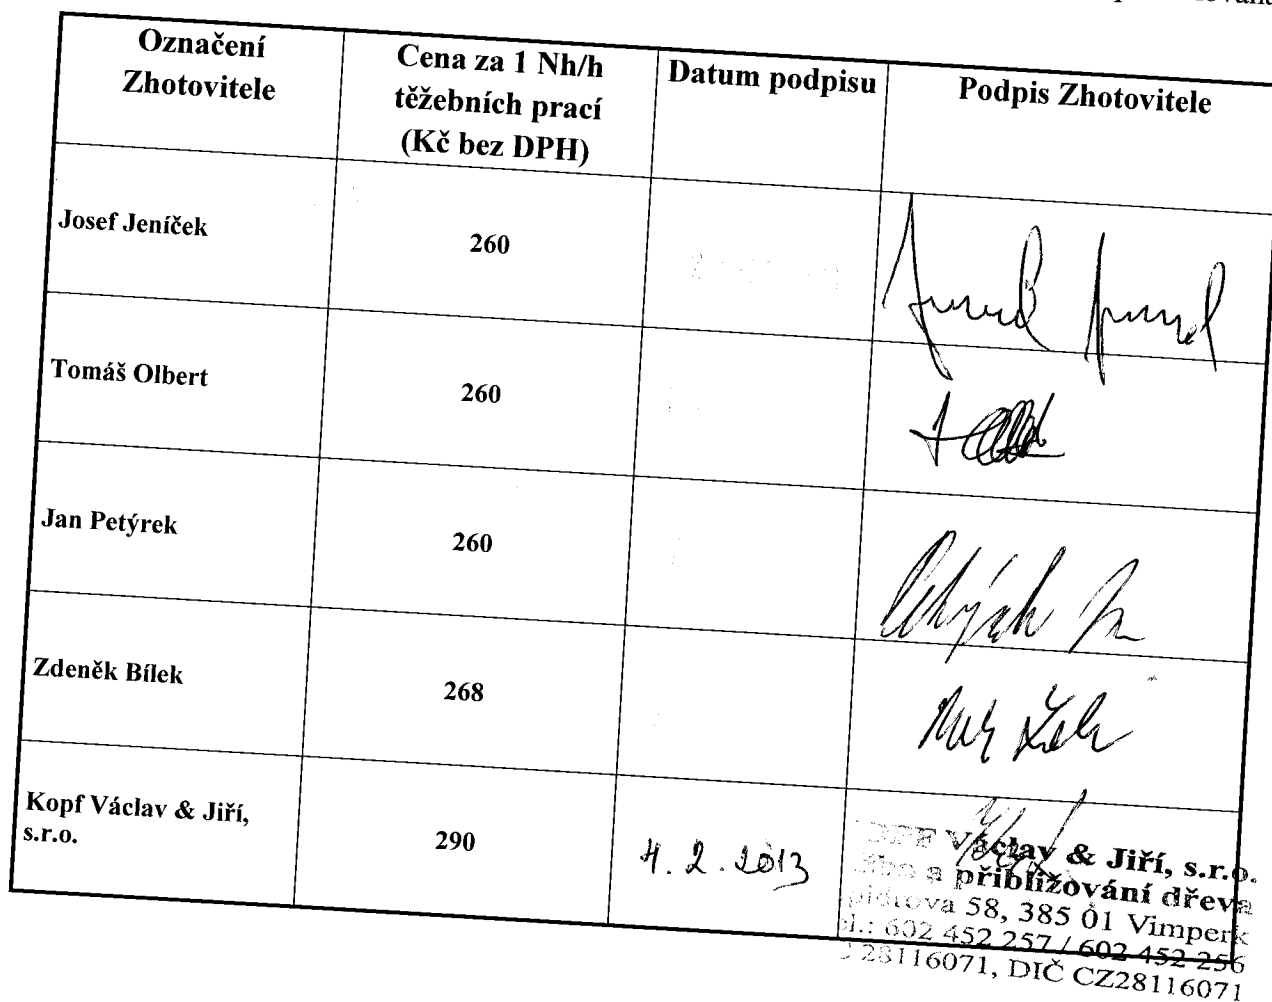 Označení
Zhotovitele
Cena za 1 Nh/h
těžebních prací
(Kč bez DPH)
Datum podpisu
Podpis Zhotovitele
Josef Jeníček
260
Tomáš Olbert
260
Jan Petýrek
260
Zdeněk Bílek
268
Kopf Václav & Jiří,
s.r.o.
290
4. 2. 2013
Václav & Jiří, s.r.o.
a přibližování dřeva
58, 385 01 Vimperk
602 452 257 / 602 452 256
28116071, DIČ CZ28116071